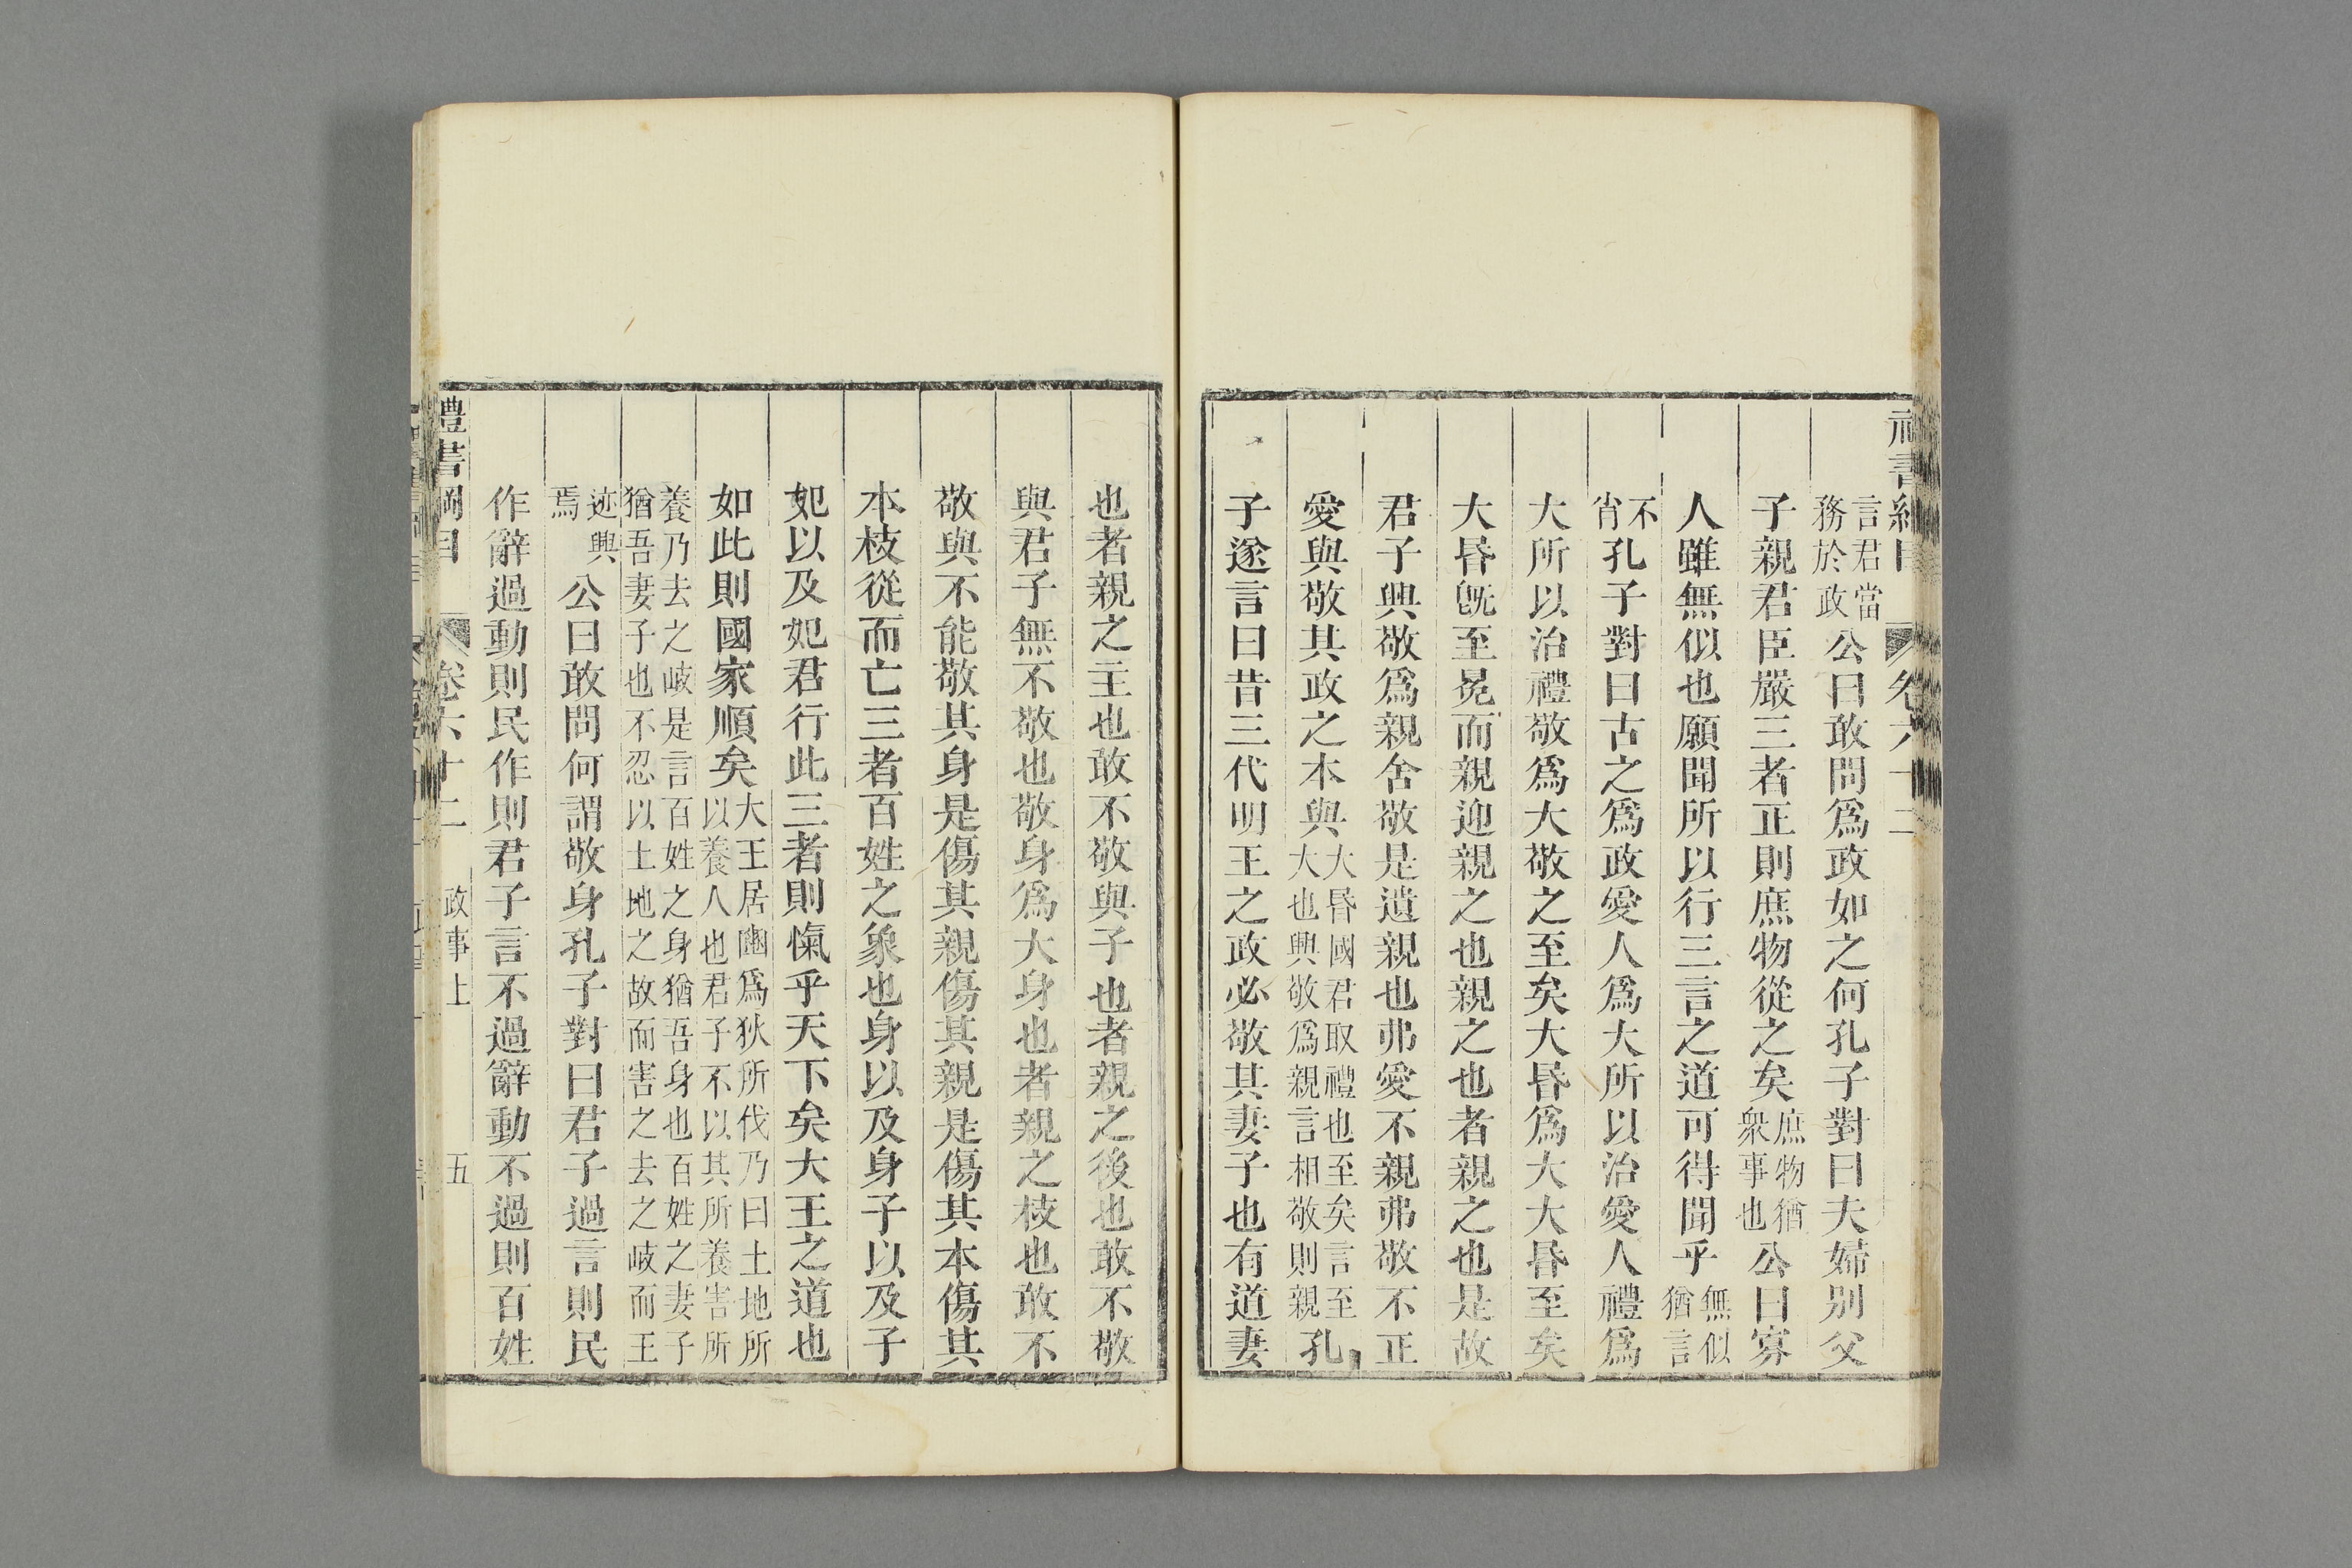 禮書綱目　卷六十二
言君當務於政公曰敢問爲政如之何孔子對曰夫婦別父
子親君臣嚴三者正則庶物從之矣庶物猶衆事也公曰寡
人雖無似也願聞所以行三言之道可得聞乎無似猶言
不肖孔子對曰古之爲政愛人爲大所以治愛人禮爲
大所以治禮敬爲大敬之至矣大昏爲大大昏至矣
大昏旣至冕而親迎親之也親之也者親之也是故
君子興敬爲親舍敬是遺親也弗愛不親弗敬不正
愛與敬其政之本與大昏國君取禮也至矣言至大也興敬爲親言相敬則親孔
子遂言曰昔三代明王之政必敬其妻子也有道妻
也者親之主也敢不敬與子也者親之後也敢不敬
與君子無不敬也敬身爲大身也者親之枝也敢不
敬與不能敬其身是傷其親傷其親是傷其本傷其
本枝從而亡三者百姓之象也身以及身子以及子
妃以及妃君行此三者則愾乎天下矣大王之道也
如此則國家順矣大王居豳爲狄所伐乃曰土地所以養人也君子不以其所養害所
養乃去之岐是言百姓之身猶吾身也百姓之妻子猶吾妻子也不忍以土地之故而害之去之岐而王
迹興焉公曰敢問何謂敬身孔子對曰君子過言則民
作辭過動則民作則君子言不過辭動不過則百姓
禮書綱目　卷六十二　政事上　五